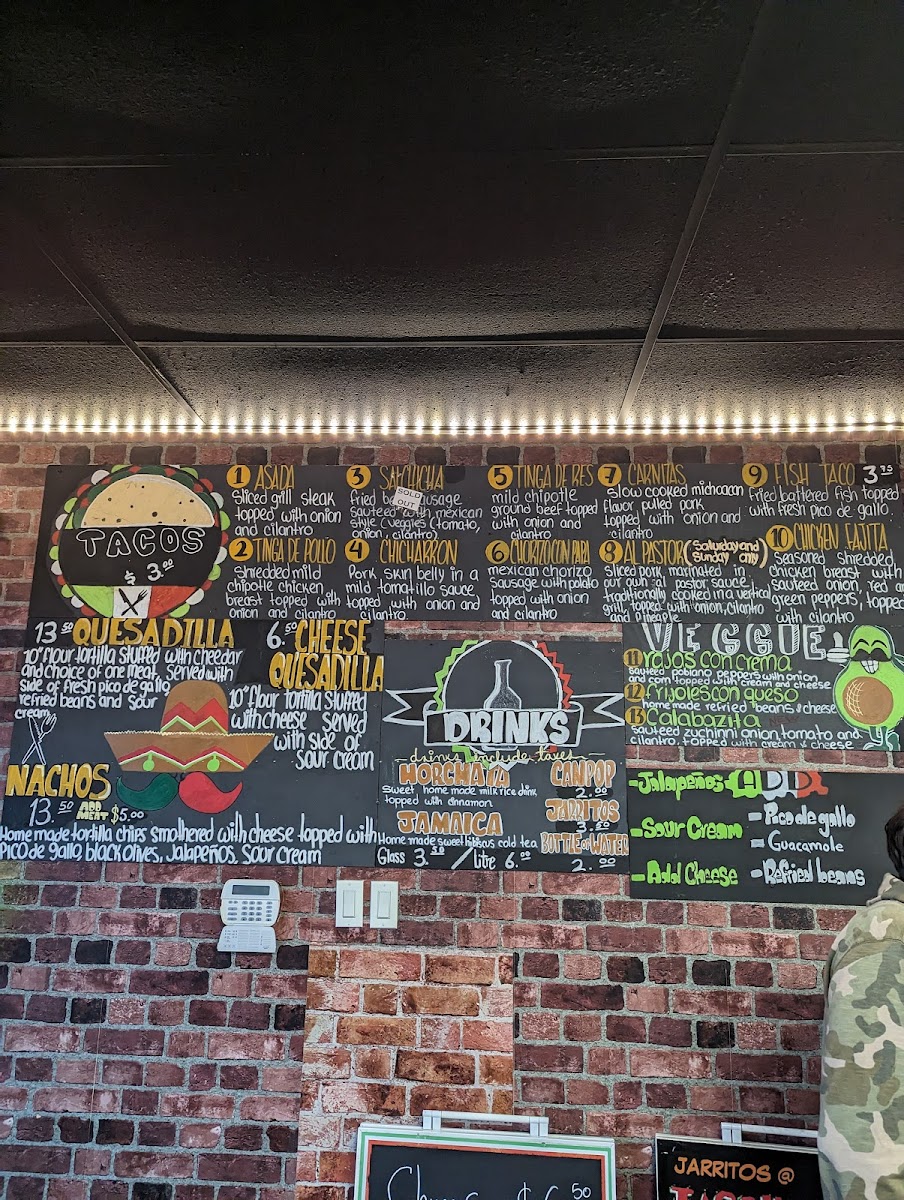 TACOS
$ 3.00
1 ASADA
Sliced grill steak
topped with onion
and cilantro
2 TINGA DE POLLO
Shredded mild
chipotle chicken
breast topped with
onion and cilantro
3 SALCHICHA
SOLD
fried sausage
sauteed with mexican
style (veggies (tomato,
onion, cilantro)
4 CHICHARRON
Pork skin belly in a
mild tomatillo sauce
topped with onion and
cilantro.
5 TINGA DE RES
mild chipotle
ground beef topped
with onion and
cilantro
6 CHORIZO CON PAPA
mexican chorizo
Sausage with potato
topped with onion
and cilantro
7 CARNITAS
Slow cooked michoacan
flavor pulled pork
topped with onion and
cilantro
8 AL PASTOR (Saturday and
Sunday only)
Sliced pork marinated in
our own al pastor sauce,
traditionally cooked in a vertical
grill, topped with onion, cilantro
and pineapple
9 FISH TACO 3.75
Fried battered fish topped
with fresh pico de gallo.
10 CHICKEN FAJITA
Seasoned shredded
chicken breast with
sauteed onion, red and
green peppers, topped
with cilantro
13.50 QUESADILLA
10" flour tortilla stuffed with chedar
and choice of one meat. Served with
side of fresh pico de gallo
refried beans and sour
cream
6.50 CHEESE
QUESADILLA
10" flour tortilla stuffed
with cheese served
with side of
sour cream
NACHOS
13.50 ADD
MEAT $5.00
Home made tortilla chips smothered with cheese topped with
Pico de gallo, black olives, Jalapeños, Sour Cream
DRINKS
drinks include taxes
HORCHATA
Sweet home made milk rice drink
topped with cinnamon
JAMAICA
Home made sweet hibiscus cold tea
Glass 3.50 / Litre 6.00
CAN POP
2.00
JARRITOS
3.50
BOTTLE of WATER
2.00
VEGGIE
11 rajos con crema
Sauteed Poblano peppers with onion
and corn topped with cream and cheese
12 frijoles con queso
home made refried beans & cheese
13 Calabazita NEW
Sauteed zuchinni onion, tomato and
cilantro, topped with cream & cheese
ADD
- Jalapeños
- Sour Cream
- Add Cheese
- Pico de gallo
- Guacamole
- Refried beans
JARRITOS @